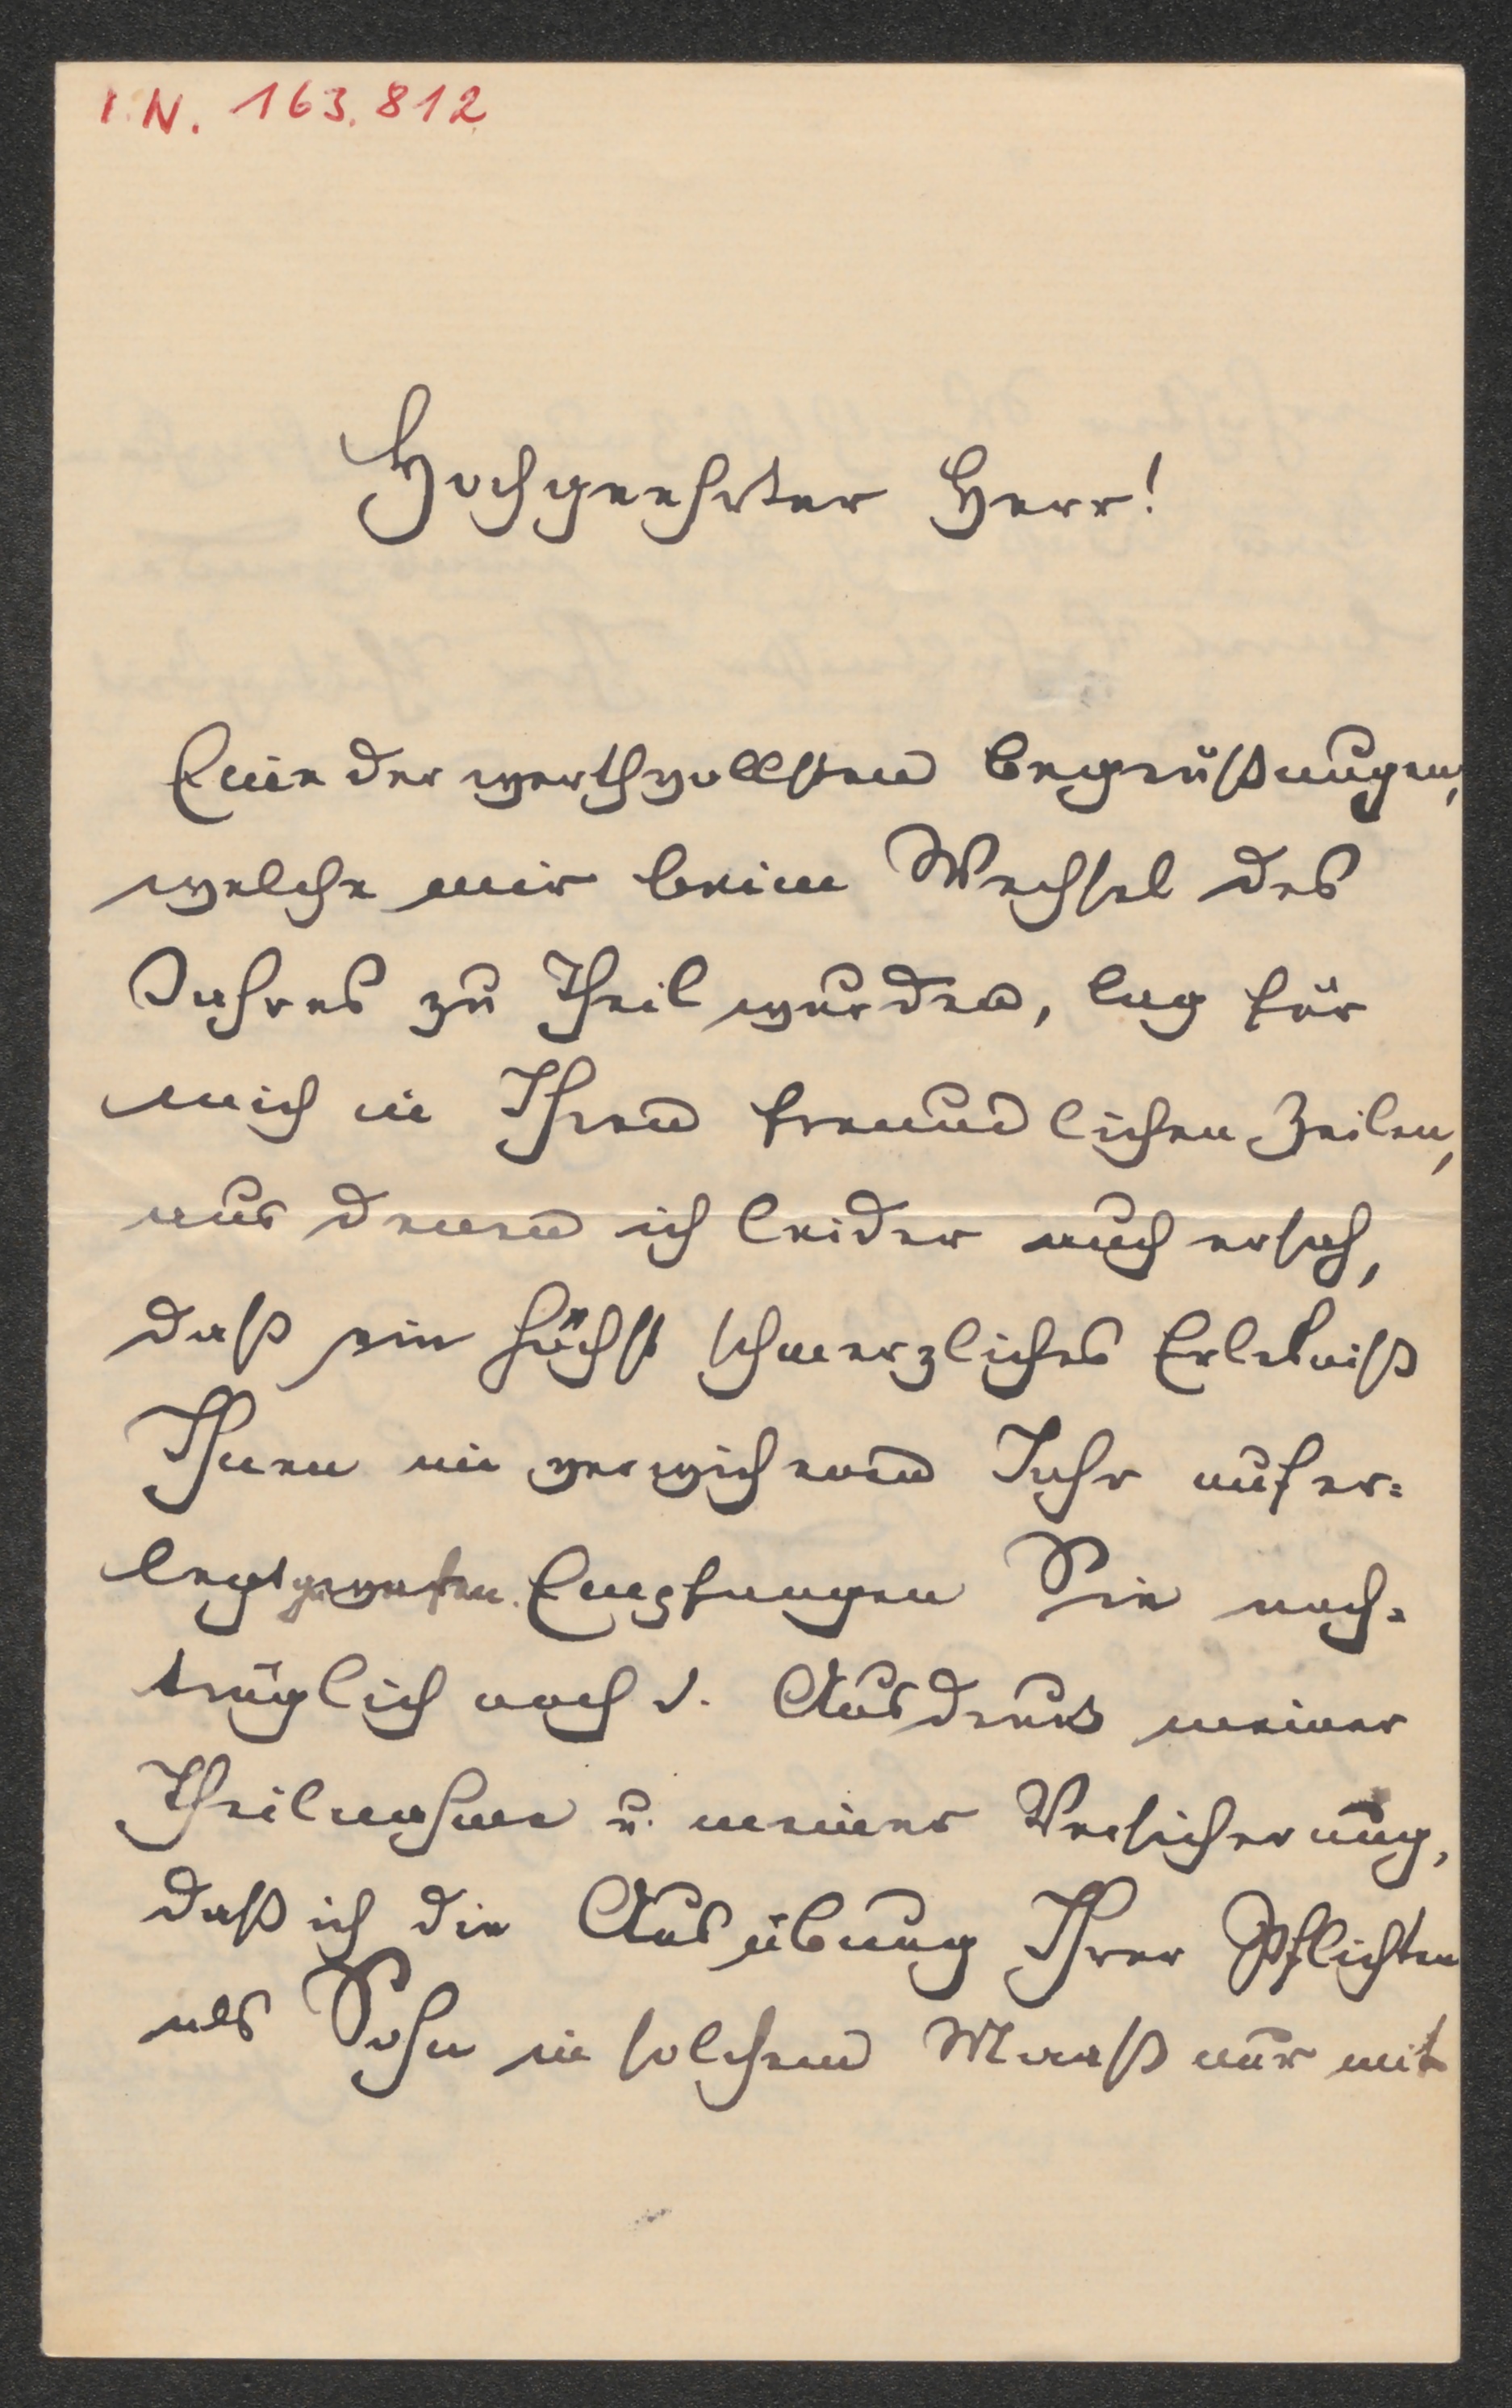 I.N. 163.812
Hochgeehrter Herr!
Eine der werthvollsten Begrüßungen,
welche mir beim Wechsel des
Jahres zu Theil wurden, lag für
mich in Ihren freundlichen Zeilen,
aus denen ich leider auch ersah,
daß ein höchst schmerzliches Erlebniß
Ihnen im verwichenen Jahr aufer=
legt gewesen. Empfangen Sie nach=
träglich noch d. Ausdruck meiner
Theilnahme u. meiner Versicherung,
daß ich die Ausübung Ihrer Pflichten
als Sohn in solchem Maaß nur mit